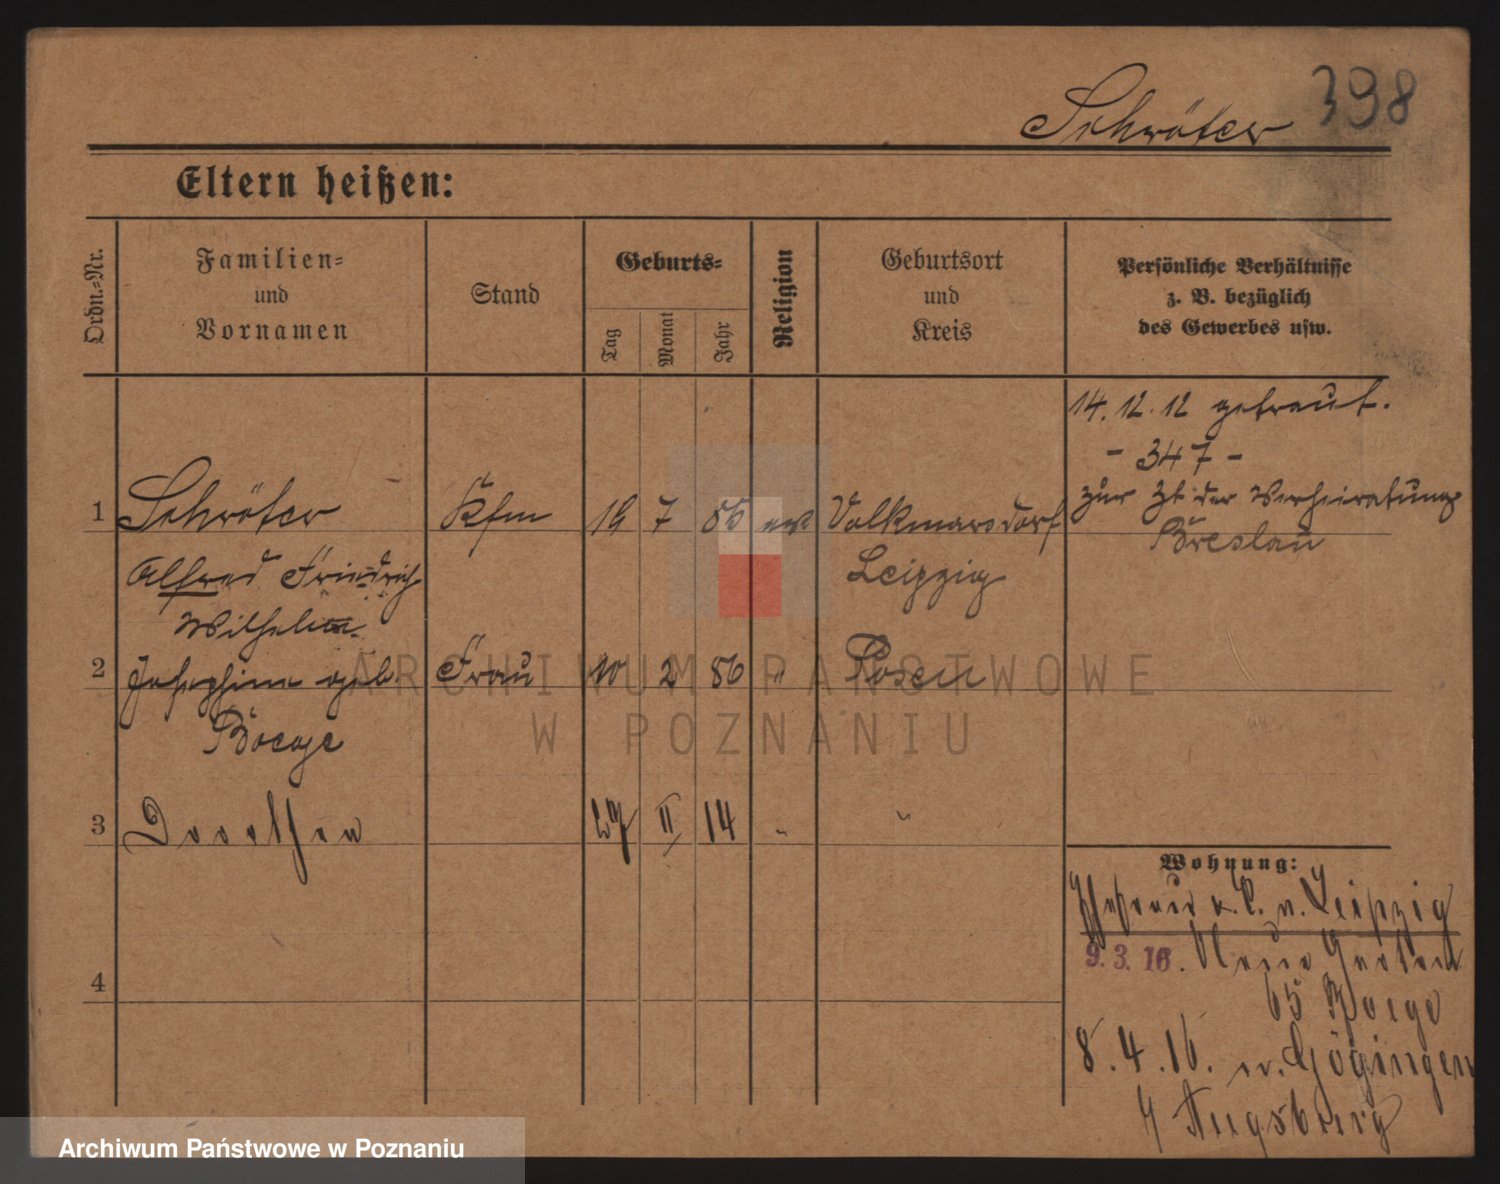 398
Schröter
Eltern heißen:
Ordn.-Nr.
Familien-
und
Vornamen
Stand
Geburts-
Tag
Monat
Jahr
Religion
Geburtsort
und
Kreis
Persönliche Verhältnisse
z. B. bezüglich
des Gewerbes usw.
14.12.12 getraut.
- 347 -
zur Zt. der Verheiratung
Breslau
1 Schröter Kfm 19 7 86 Volkmarsdorf
Alfred Friedrich Leipzig
Wilhelm
2 Josephine geb. Frau 10 2 86 " Posen
Bocage
3 Dorothea 27 II 14 " "
Wohnung:
v. n. Leipzig
9. 3. 16. Neue Garten
65
8.4.16. n. Gögingen
Augsburg
4
ARCHIWUM PAŃSTWOWE
W POZNANIU
Archiwum Państwowe w Poznaniu